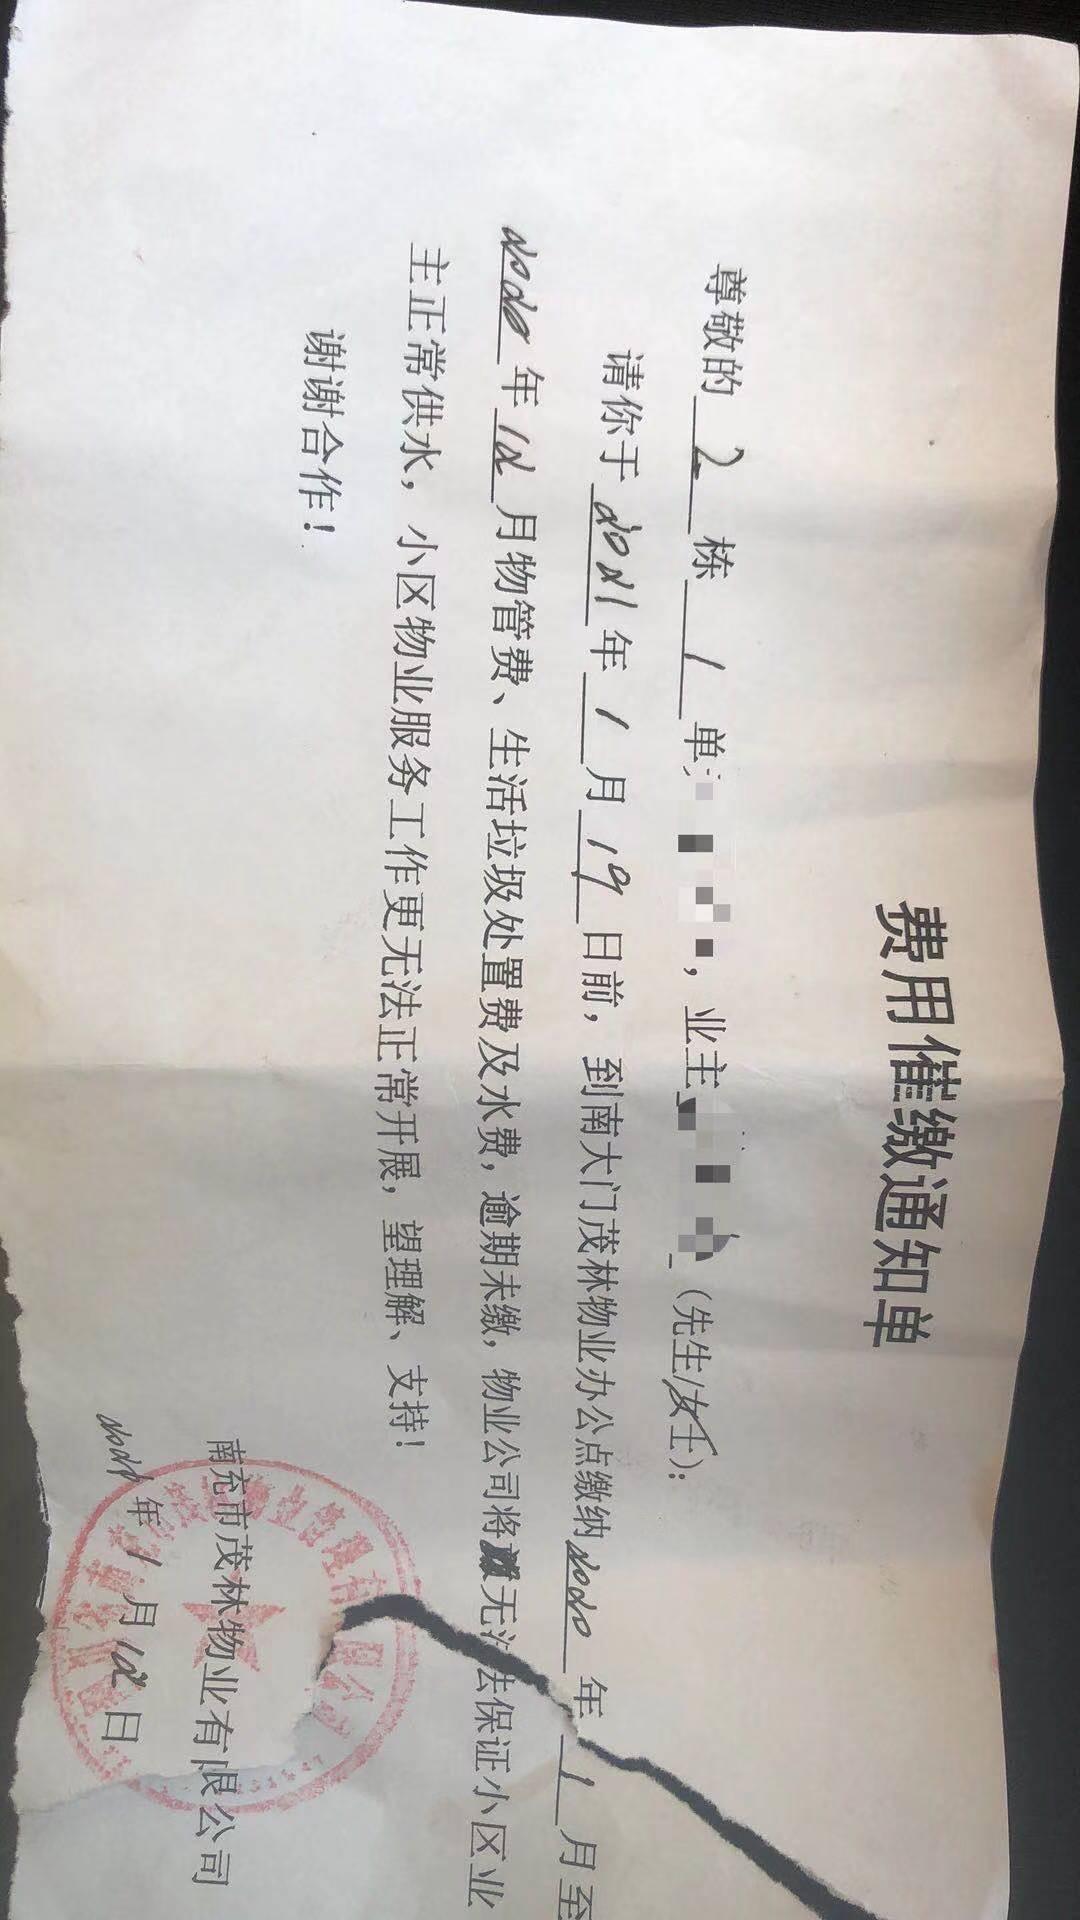 费用催缴通知单
尊敬的 2 栋 1 单 ，业主 （先生/女士）：
请你于 2021 年 1 月 19 日前，到南大门茂林物业办公点缴纳 2020 年 1 月至
2020 年 12 月物管费、生活垃圾处置费及水费，逾期未缴，物业公司将无法保证小区业
主正常供水，小区物业服务工作更无法正常开展，望理解、支持！
谢谢合作！
南充市茂林物业有限公司
2021 年 1 月 12 日